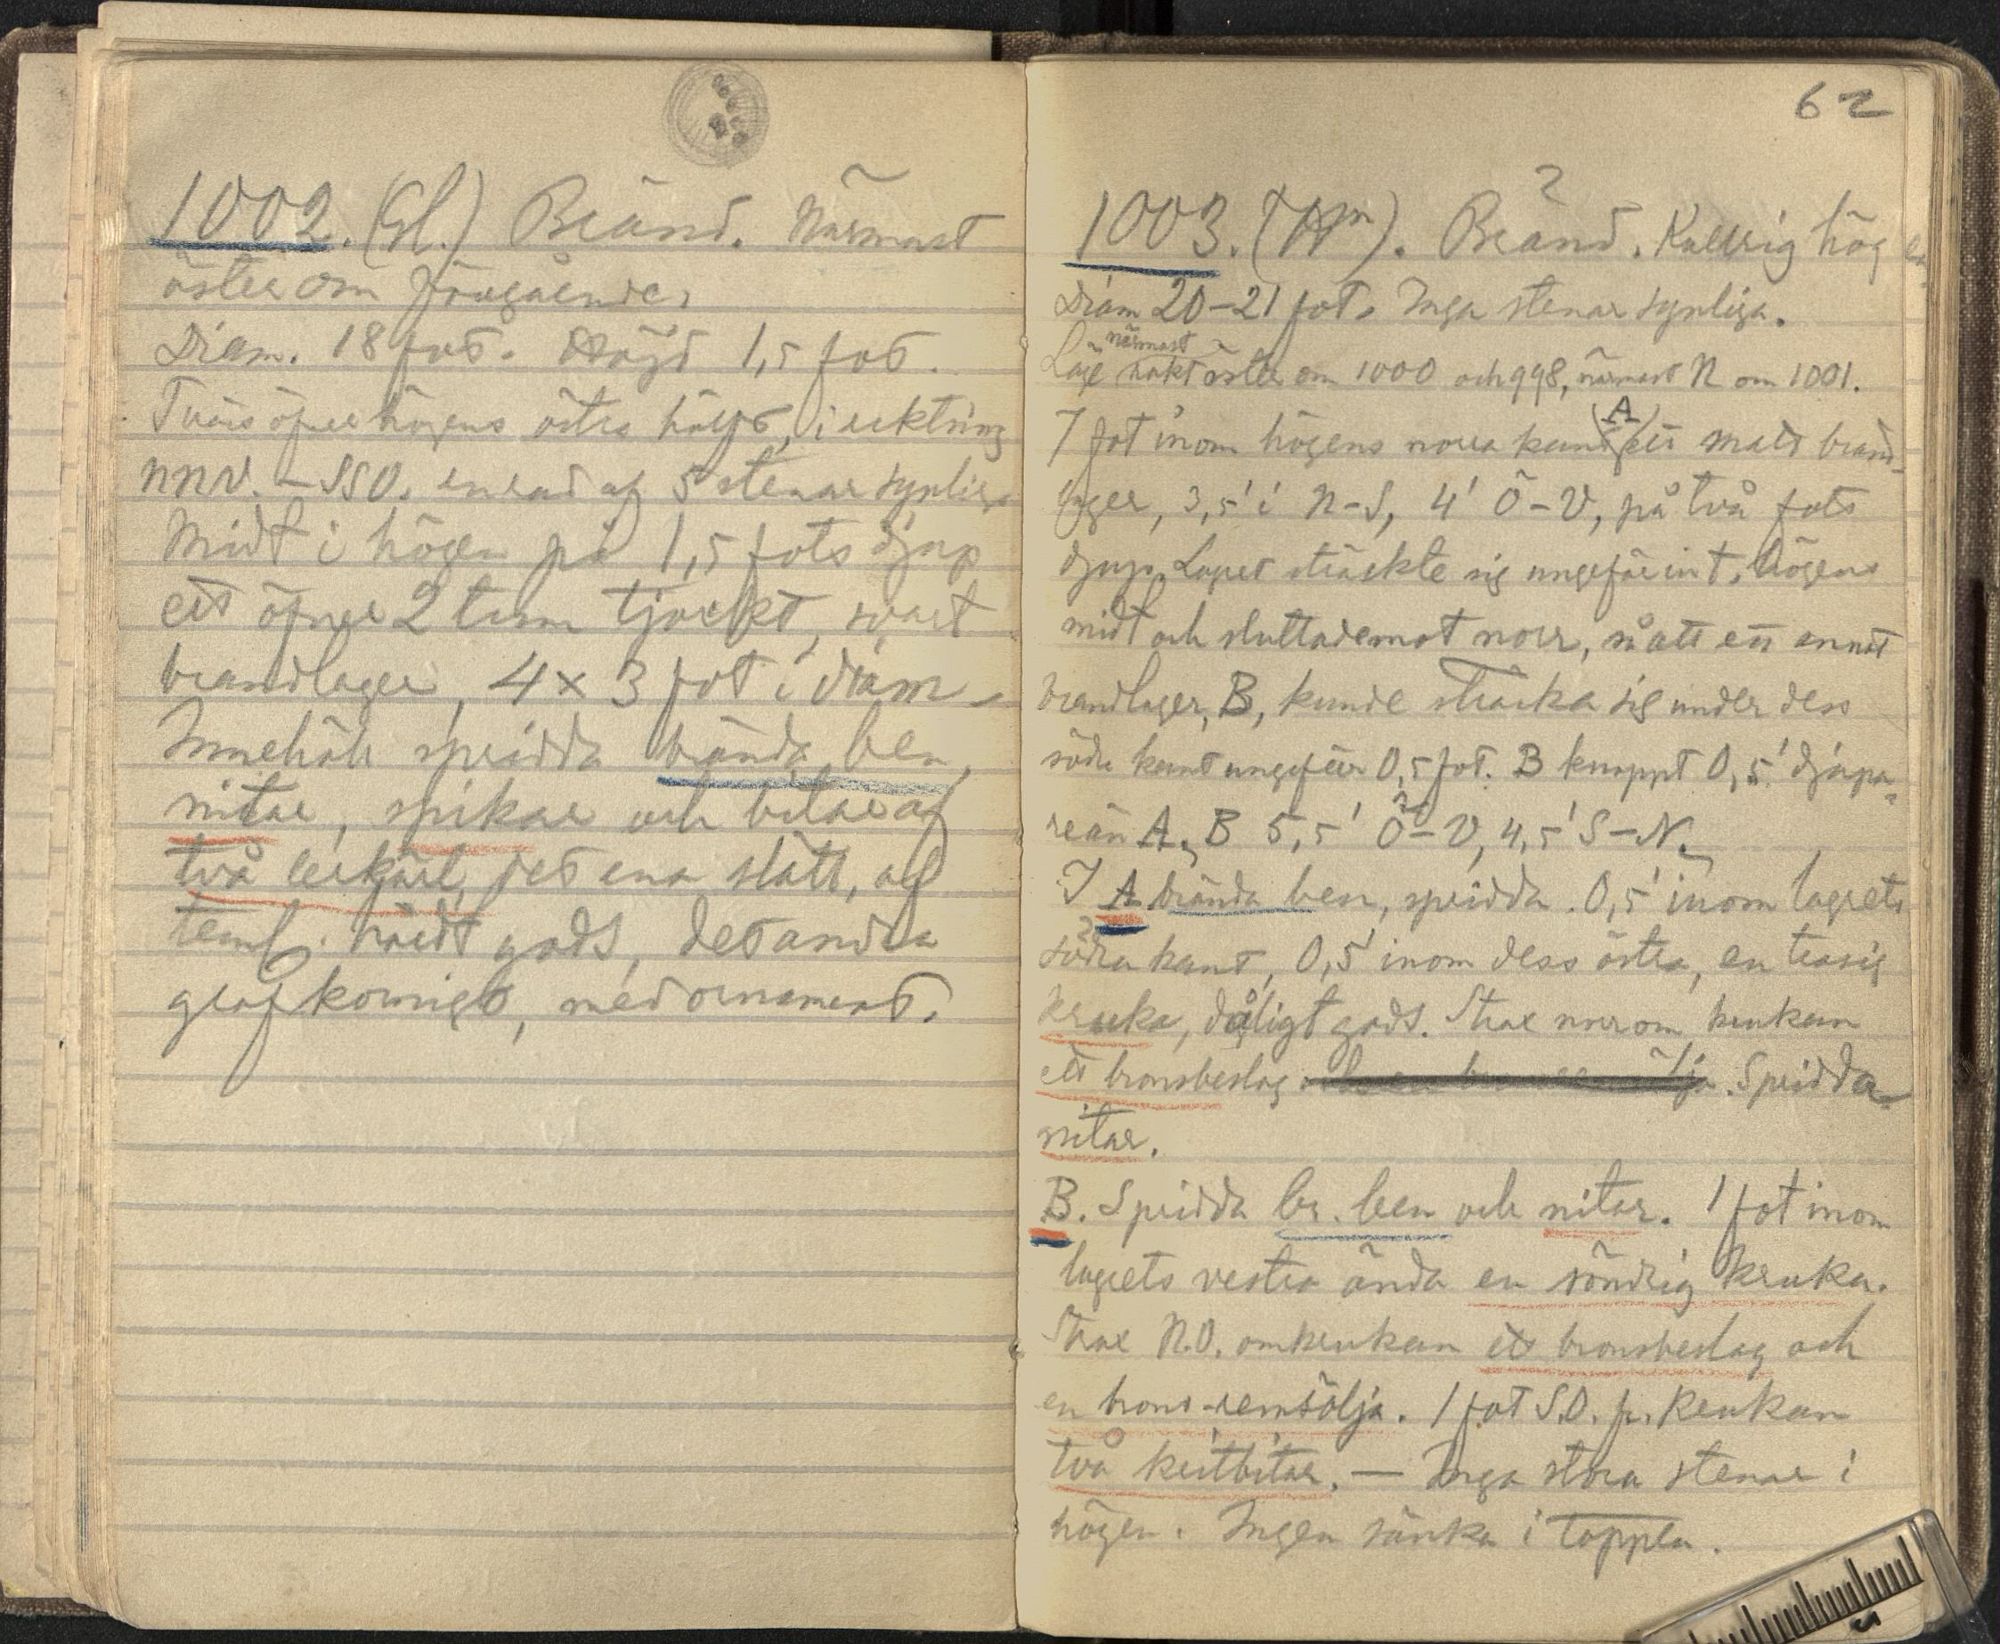 1002. (Gl.) Bränd. Närmast
öster om föregående.
Diam. 18 fot. Höjd 1,5 fot.
Tvärs öfver högens östra hälft, i riktning
NNV. – SSO. en rad af 5 stenar synliga
Midt i högen på 1,5 fots djup
ett öfver 2 tum tjockt, svart
brandlager, 4 x 3 fot i diam.
Innehöll spridda brända ben,
nitar, spikar och bitar af
två lerkärl, det ena slätt, af
teml. hårdt gods, det andra
grofkornigt, med ornament.
62
1003. (Hm). Bränd. Kullrig hög
Diam 20-21 fot. Inga stenar synliga.
närmast
Läge rakt öster om 1000 och 998, närmast N om 1001.
7 fot inom högens norra kant (A) ett smalt brand-
lager, 3,5' i N-S, 4' Ö-V, på två fots
djup. Lagret sträckte sig ungefär int. högens
midt och sluttade mot norr, så att ett annat
brandlager, B, kunde sträcka sig under dess
södra kant ungefär 0,5 fot. B knappt 0,5' djupa-
re än A. B 5,5' Ö-V, 4,5' S-N.
I A brända ben, spridda. 0,5' inom lagrets
södra kant, 0,5' inom dess östra, en trasig
kruka, dåligt gods. Strax norr om krukan
ett bronsbeslag. Spridda
nitar.
B. Spridda br. ben och nitar. 1 fot inom
lagrets vestra ända en söndrig kruka.
Strax N.O. om krukan ett bronsbeslag och
en brons-remsölja. 1 fot S.O. fr. krukan
två kritbitar. — Inga stora stenar i
högen. Ingen sänka i toppen.